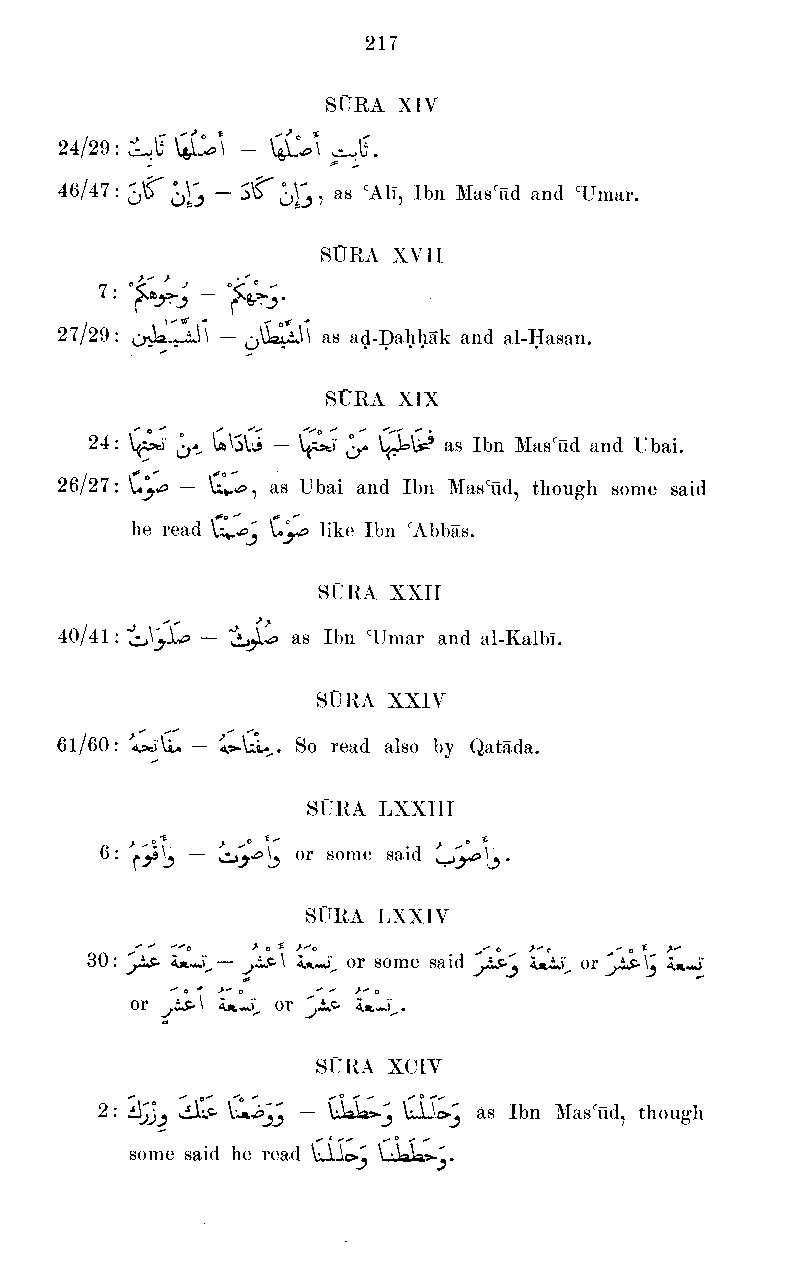 217
SŪRA XIV
24/29: أَصْلُهَا ثَابِتٌ — ثَابِتٍ أَصْلُهَا.
46/47: وَإِنْ كَانَ — وَإِنْ كَادَ, as ʿAlī, Ibn Masʿūd and ʿUmar.
SŪRA XVII
7: وُجُوهَكُمْ — وَجْهَكُمْ.
27/29: ٱلشَّيَـٰطِينِ — ٱلشَّيْطَانِ as aḍ-Ḍaḥḥāk and al-Ḥasan.
SŪRA XIX
24: فَنَادَاهَا مِنْ تَحْتِهَا — فَخَاطَبَهَا مَنْ تَحْتَهَا as Ibn Masʿūd and Ubai.
26/27: صَوْمًا — صَمْتًا, as Ubai and Ibn Masʿūd, though some said
he read صَوْمًا وَصَمْتًا like Ibn ʿAbbās.
SŪRA XXII
40/41: صَلَوَاتٌ — صُلُوثٌ as Ibn ʿUmar and al-Kalbī.
SŪRA XXIV
61/60: مَفَاتِحَهُ — مِفْتَاحَهُ. So read also by Qatāda.
SŪRA LXXIII
6: وَأَقْوَمُ — وَأَصْوَتُ or some said وَأَصْوَبُ.
SŪRA LXXIV
30: تِسْعَةَ عَشَرَ — تِسْعَةُ أَعْشُرٍ or some said تِسْعَةُ وَعْشَرَ or تِسعَةُ وَأَعْشَرَ
or تِسْعَةَ أَعْشَرٍ or تِسْعَةُ عَشَرَ.
SŪRA XCIV
2: وَوَضَعْنَا عَنْكَ وِزْرَكَ — وَحَلَلْنَا وَحَطَطْنَا as Ibn Masʿūd, though
some said he read وَحَطَطْنَا وَحَلَلْنَا.